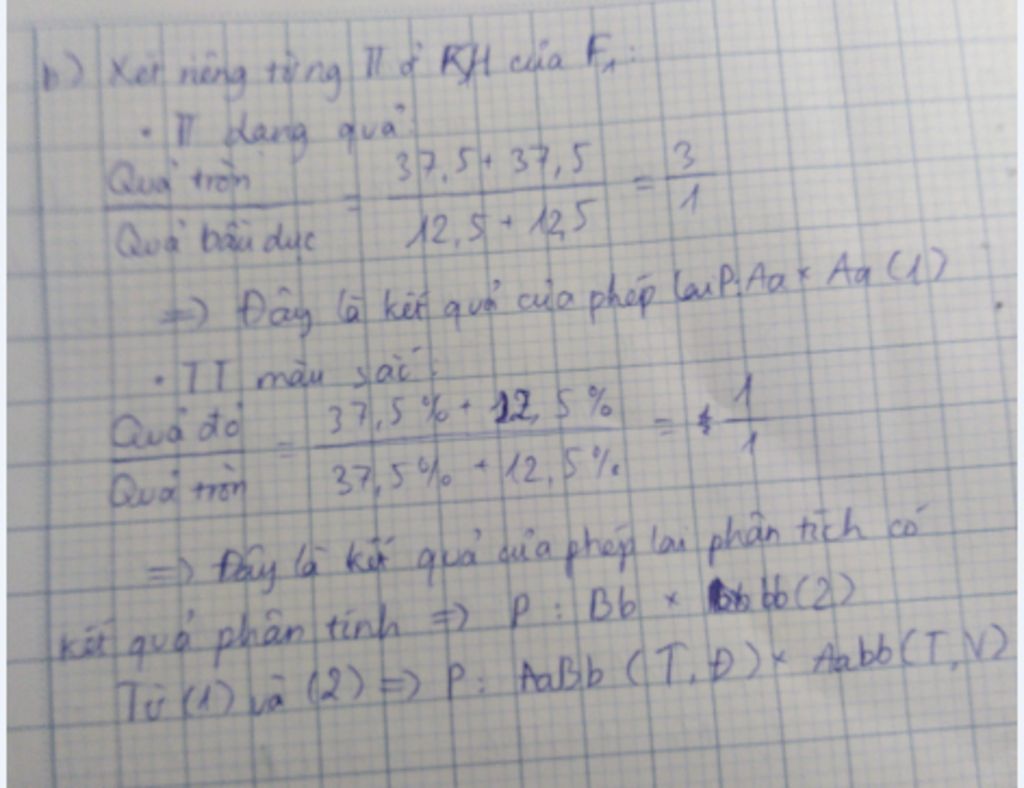 b) Xét riêng từng TT ở KH của F₁:
• TT dạng quả:
Quả tròn / Quả bầu dục = 37,5 + 37,5 / 12,5 + 12,5 = 3 / 1
=> Đây là kết quả của phép lai P: Aa × Aa (1)
• TT màu sắc:
Quả đỏ / Quả tròn = 37,5% + 12,5% / 37,5% + 12,5% = 1 / 1
=> Đây là kết quả của phép lai phân tích có
kết quả phân tính => P : Bb × bb (2)
Từ (1) và (2) => P: AaBb (T, Đ) × Aabb (T, V)